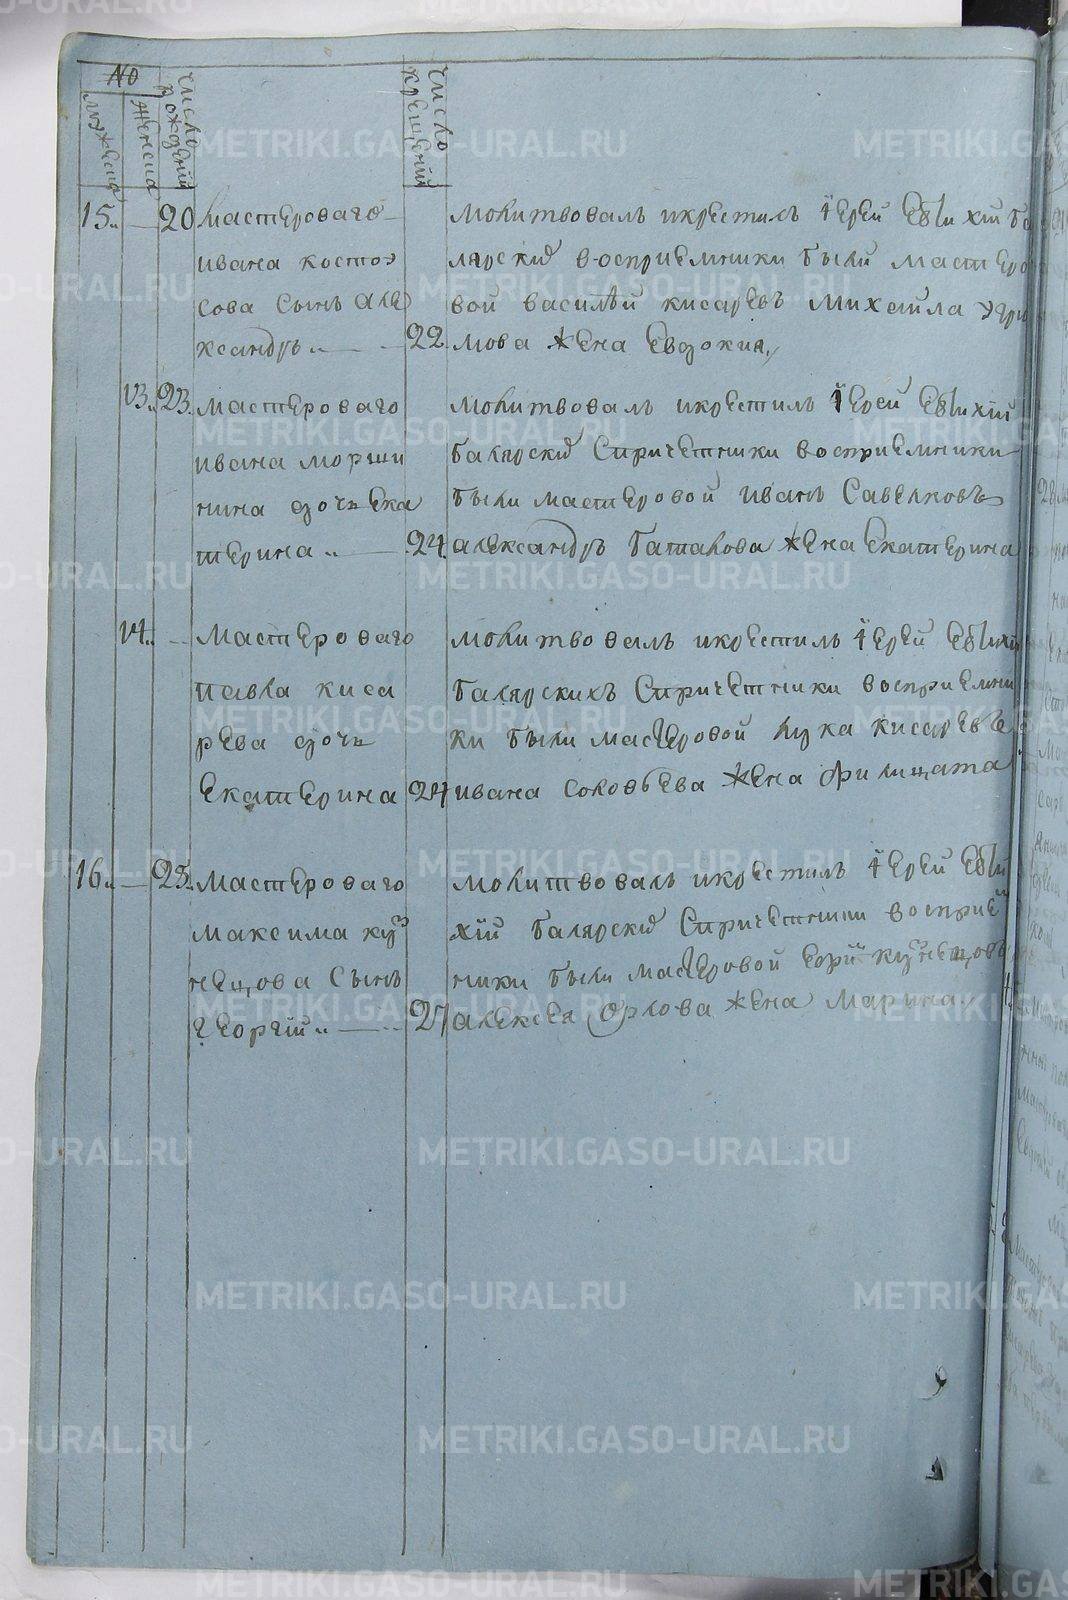 №
мужеска
женска
число рождений
число крещений
15.. — 20 мастероваго
ивана косто
сова сынъ але
ксандръ.. — 22
молитвовалъ и крестилъ іерей
лярскій восприемники были мастеро
вой василѣй кисаревъ михаила угрю
мова жена Евдокия,
13.. 23. мастероваго
ивана морши
нина дочь ека
терина.. — 24
молитвовалъ и крестилъ іерей
балярскій спричетники восприемники
были мастеровой иванъ Савелковъ
александръ баталова жена Екатерина
14.. — мастероваго
павла киса
рева дочь
Екатерина 24
молитвовалъ и крестилъ іерей
балярскихъ спричетники восприемни
ки были мастеровой лука кисаревъ
ивана соловьева жена филицата
16.. — 25. мастероваго
максима куз
нецова сынъ
георгій.. — 27
молитвовалъ и крестилъ іерей
хій балярскій спричетники восприем
ники были мастеровой кузнецовъ
алексея Орлова жена марина.
METRIKI.GASO-URAL.RU